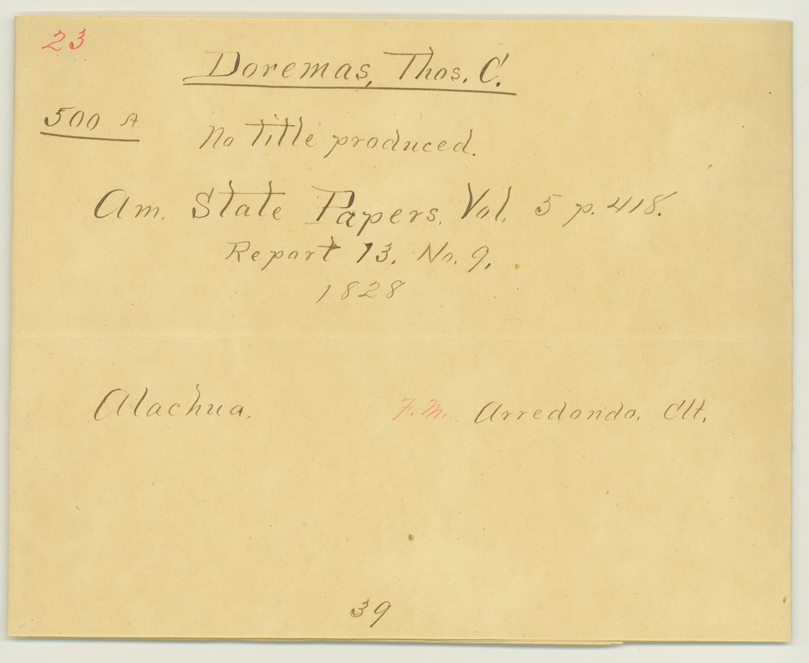 23
Doremas, Thos. C.
500 A
No title produced.
Am. State Papers. Vol. 5 p. 418.
Report 13. No. 9.
1828
Alachua.
F. M. Arredondo. Clt.
39